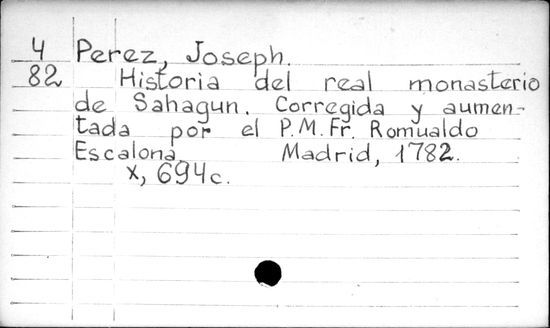 4 Perez, Joseph.
82 Historia del real monasterio
de Sahagun. Corregida y aumen-
tada por el P.M.Fr. Romualdo
Escalona. Madrid, 1782.
x, 694c.